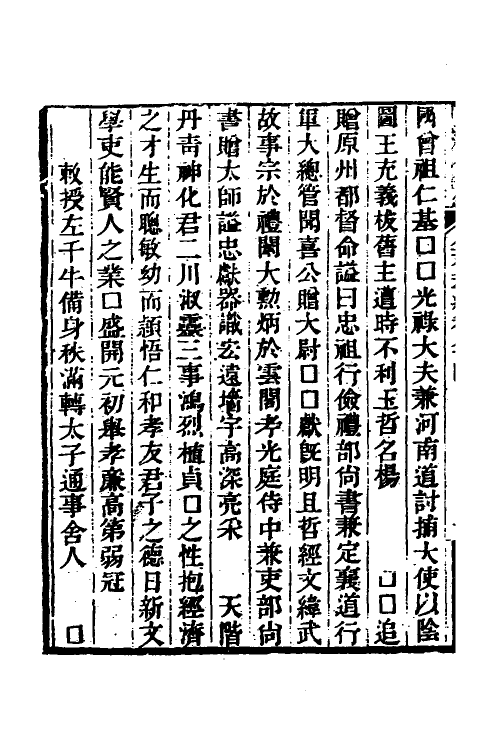 國曾祖仁基□□光祿大夫兼河南道討捕大使以陰
圖王充義拔舊主遭時不利玉哲名楊　　□□追
贈原州都督命諡曰忠祖行儉禮部尙書兼定襄道行
軍大總管聞喜公贈大尉□□獻旣明且哲經文緯武
故事宗於禮閣大勲炳於雲閣考光庭侍中兼吏部尙
書贈太師諡忠獻器識宏遠墻宇高深亮采　　天階
丹靑神化君二川淑靈三事鴻烈植貞□之性抱經濟
之才生而聰敏幼而頴悟仁和孝友君子之德日新文
學吏能賢人之業□盛開元初舉孝廉高第弱冠
敕授左千牛備身秩滿轉太子通事舍人　　□